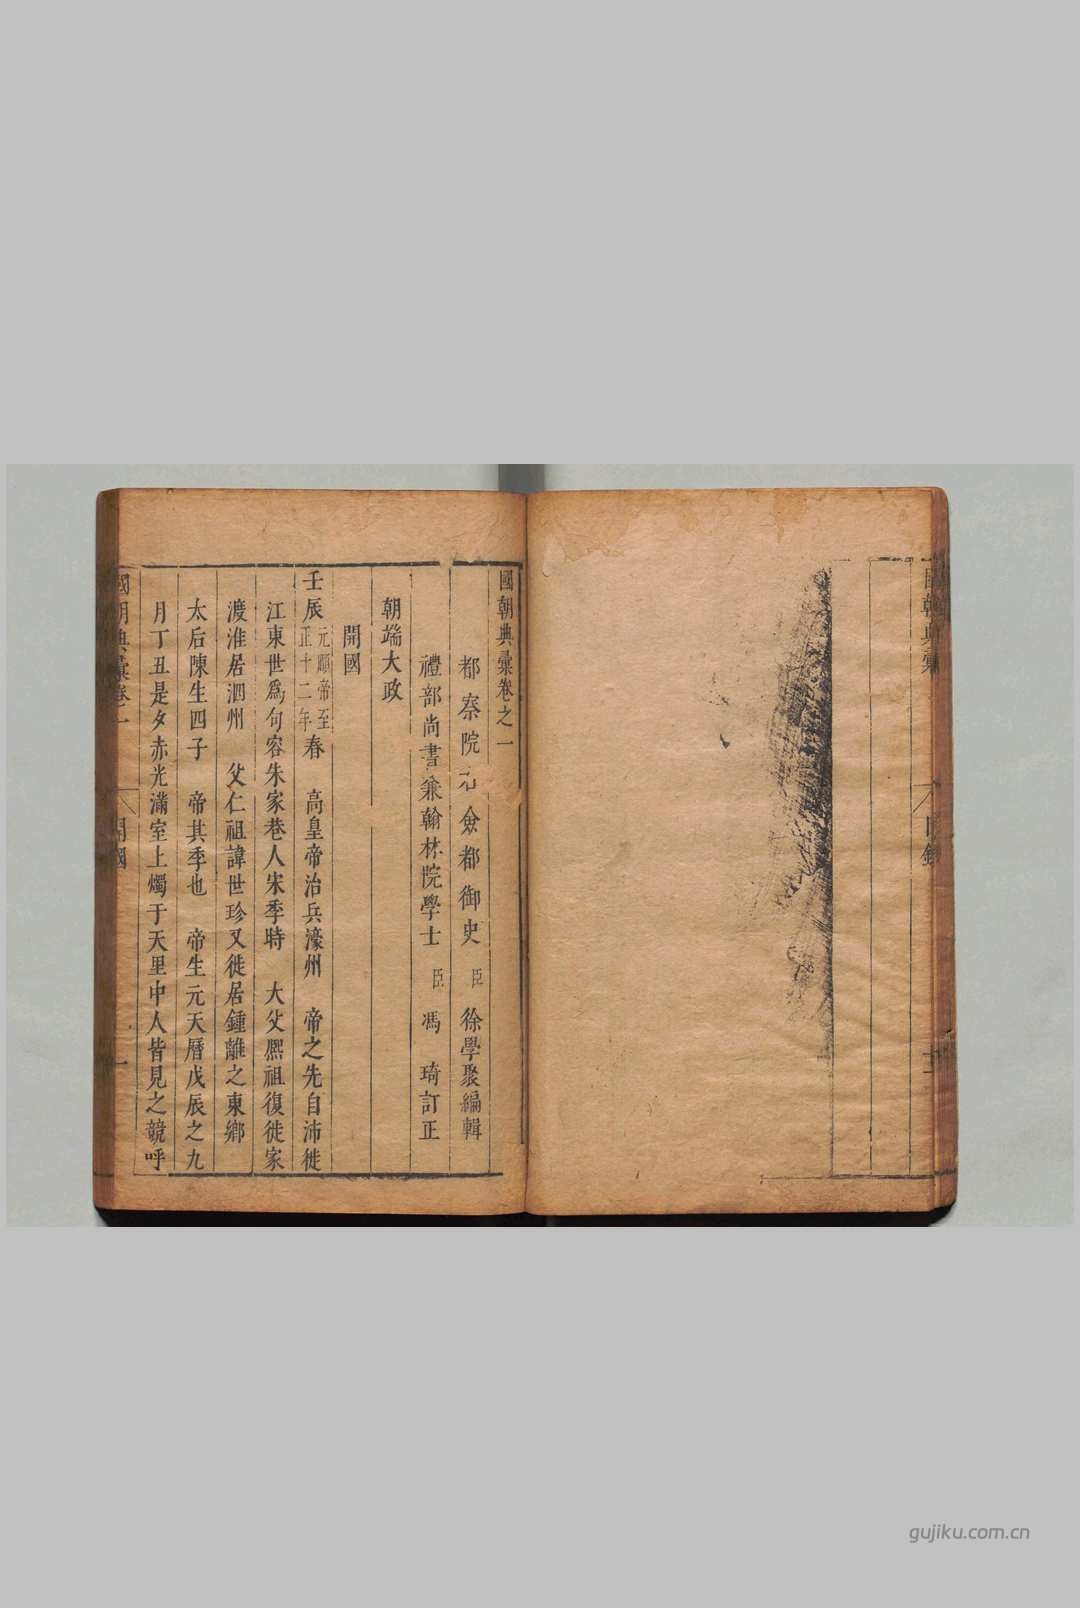 國朝典彙
目錄
國朝典彙卷之一
都察院右僉都御史 臣 徐學聚編輯
禮部尚書兼翰林院學士 臣 馮 琦訂正
朝端大政
開國
壬辰元順帝至正十二年春 高皇帝治兵濠州 帝之先自沛徙
江東世為句容朱家巷人宋季時 大父熙祖復徙家
渡淮居泗州 父仁祖諱世珍又徙居鍾離之東鄉
太后陳生四子 帝其季也 帝生元天曆戊辰之九
月丁丑是夕赤光滿室上燭于天里中人皆見之競呼
國朝典彙卷一
開國
一
gujiku.com.cn